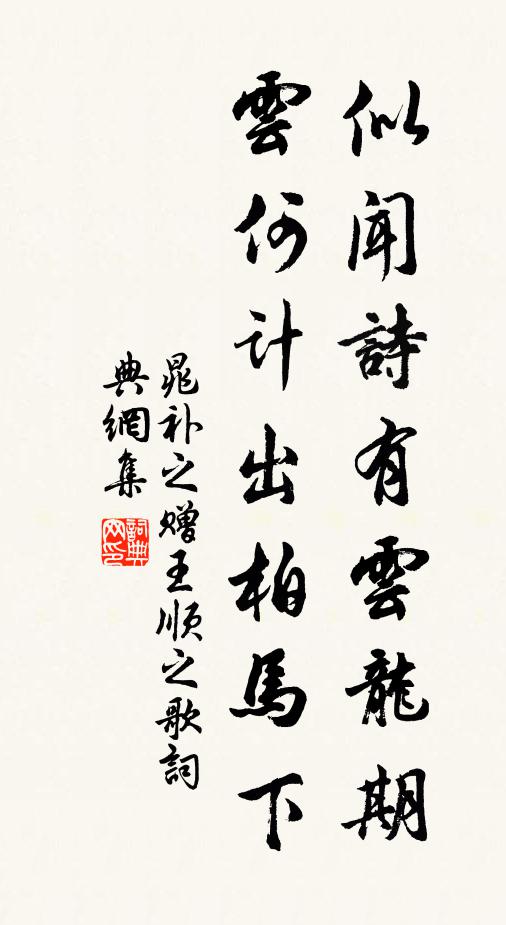 似聞詩有雲龍期
雲何計出柏馬下
晁补之赠王順之歌詞
典網集
詞典網印